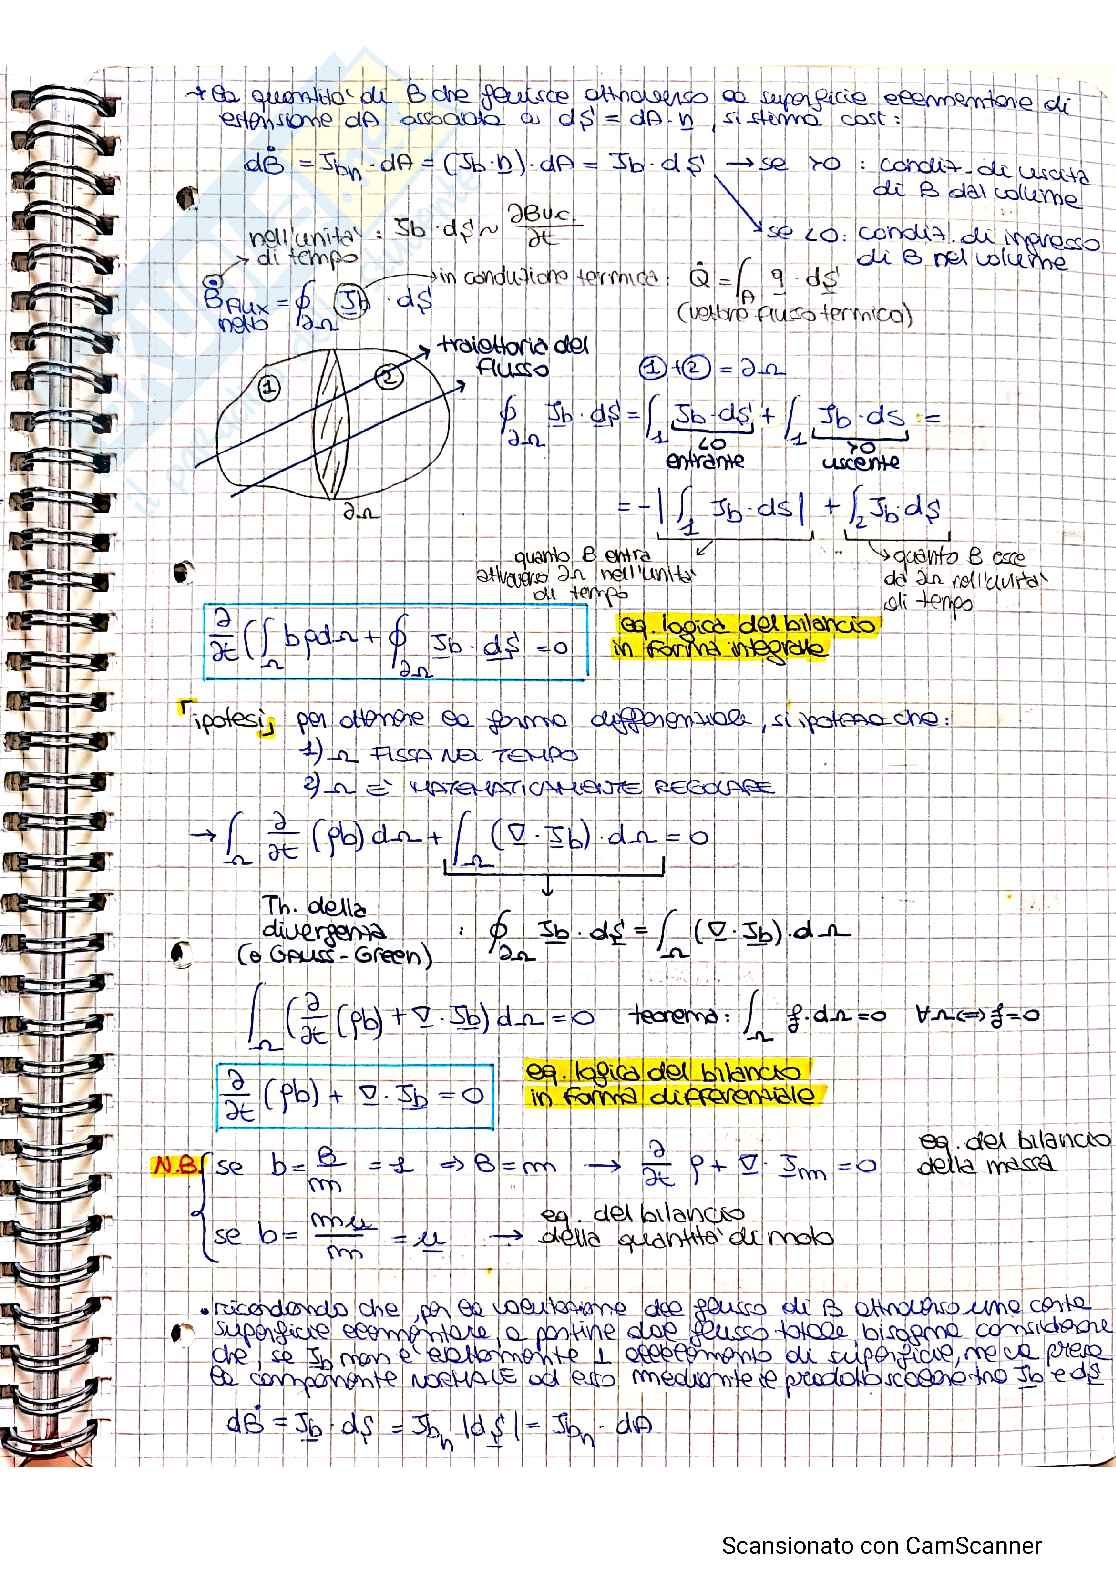 → la quantità di B che fluisce attraverso la superficie elementare di
estensione dA associata a dS = dA·n, si stima così:
dḂ = Jbn·dA = (Jb·n)·dA = Jb·dS → se >0 : condiz. di uscita
di B dal volume
nell'unità : Jb·dS ~ ∂Bv.c./∂t
di tempo
se <0: condiz. di ingresso
di B nel volume
ḂFLUX = ∮∂Ω Jb · dS → in conduzione termica: Q̇ = ∫A q · dS
netto
(vettore flusso termico)
traiettoria del
flusso
1 2
∂Ω
① + ② = ∂Ω
∮∂Ω Jb · dS = ∫1 Jb·dS + ∫1 Jb·ds =
<0 >0
entrante uscente
= -|∫1 Jb·ds| + ∫2 Jb·dS
quanto B entra
attraverso ∂Ω nell'unità
di tempo
quanto B esce
da ∂Ω nell'unità
di tempo
∂/∂t (∫Ω bρdΩ + ∮∂Ω Jb · dS = 0
eq. logica del bilancio
in forma integrale
ipotesi, per ottenere la forma differenziale, si ipotizza che:
1) Ω FISSA NEL TEMPO
2) Ω È MATEMATICAMENTE REGOLARE
→ ∫Ω ∂/∂t (ρb) dΩ + ∫Ω (∇·Jb)·dΩ = 0
Th. della
divergenza : ∮∂Ω Jb · dS = ∫Ω (∇·Jb)·dΩ
(o GAUSS-Green)
∫Ω (∂/∂t (ρb) + ∇·Jb) dΩ = 0 teorema: ∫Ω f·dΩ = 0 ∀Ω ⟺ f=0
∂/∂t (ρb) + ∇·Jb = 0
eq. logica del bilancio
in forma differenziale
N.B. se b = B/m = 1 ⇒ B = m → ∂/∂t ρ + ∇·Jm = 0
eq. del bilancio
della massa
se b = mu/m = u → eq. del bilancio
della quantità di moto
• ricordando che, per la valutazione del flusso di B attraverso una certa
superficie elementare, a partire dal flusso totale, bisogna considerare
che, se Jb non è esattamente ⊥ all'elemento di superficie, ne va presa
la componente NORMALE ad esso mediante il prodotto scalare tra Jb e dS
dḂ = Jb · dS = Jbn |dS| = Jbn · dA
Scansionato con CamScanner